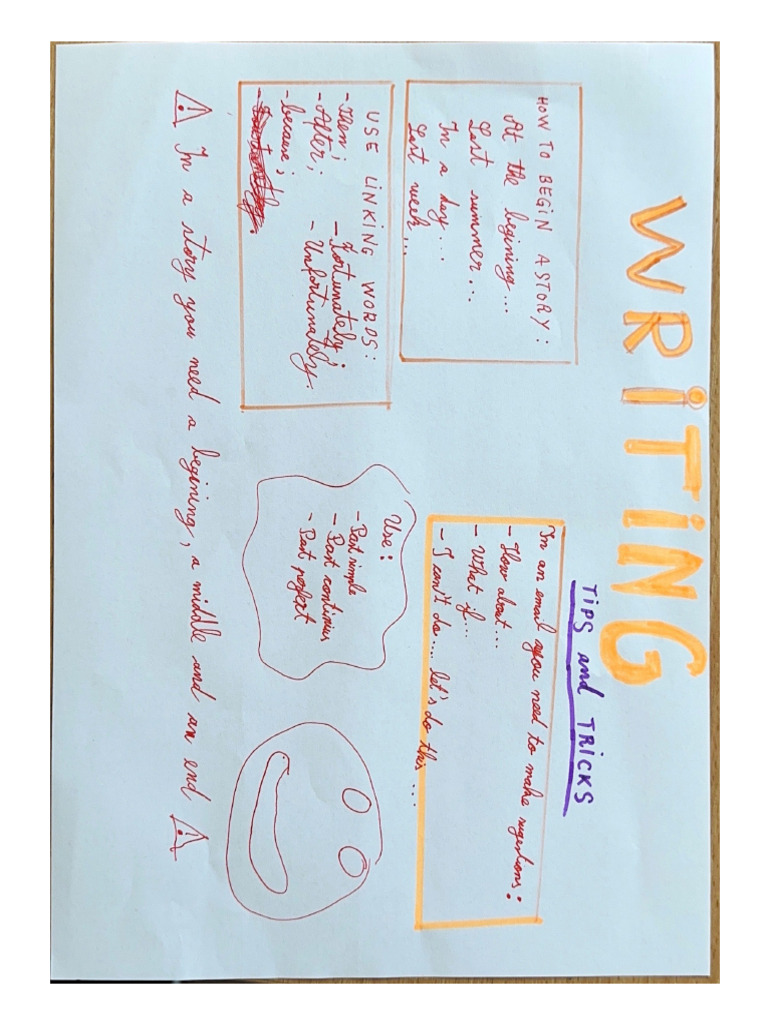 WRiTiNG
TiPS and TRiCKS
HOW TO BEGiN A STORY:
At the begining...
Last summer...
In a day...
Last week...
In an email you need to make sugestions:
- How about...
- What if...
- I can't do.... let's do this ....
USE LiNKING WORDS:
- Then;
- After;
- because;
- Fortunately;
- Unfortunately.
Use:
- Past simple
- Past continius
- Past perfect
In a story you need a begining, a middle and an end